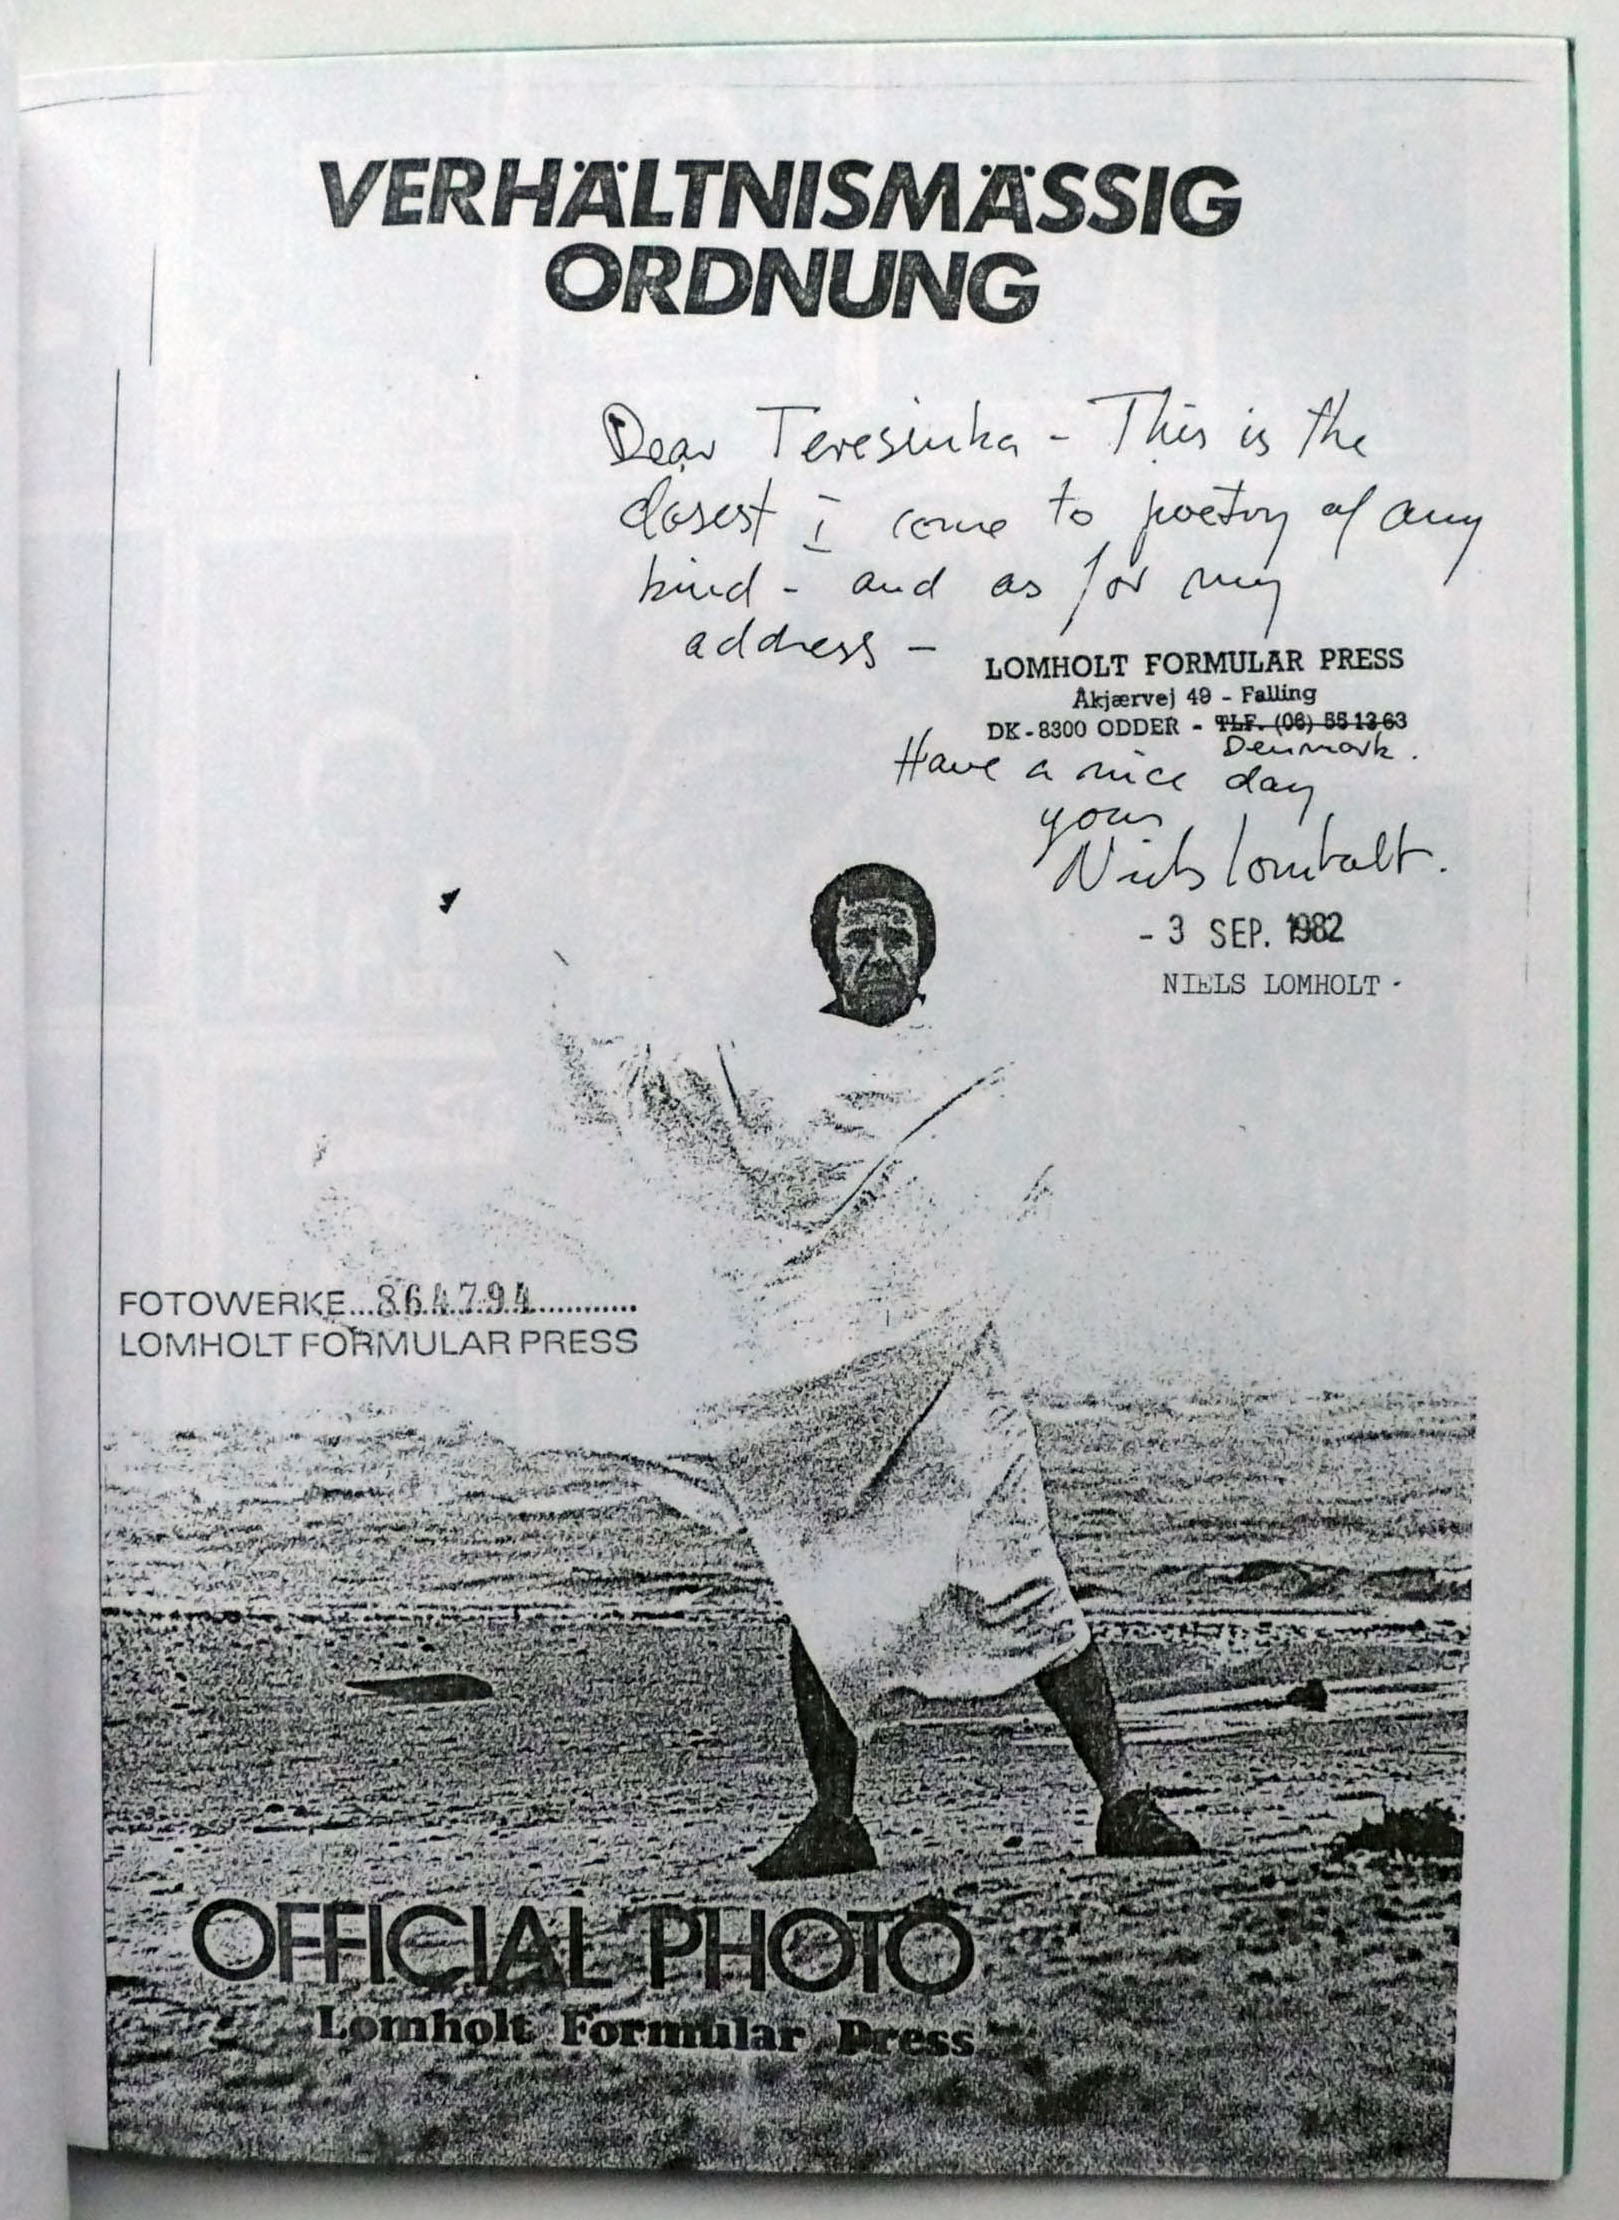 VERHÄLTNISMÄSSIG
ORDNUNG
Dear Teresinka - This is the
closest I come to poetry of any
kind - and as for my
address -
LOMHOLT FORMULAR PRESS
Åkjærvej 49 - Falling
DK-8300 ODDER - TLF. (06) 55 13 63
Denmark.
Have a nice day
yours
Niels Lomholt.
- 3 SEP. 1982
NIELS LOMHOLT -
FOTOWERKE...864794............
LOMHOLT FORMULAR PRESS
OFFICIAL PHOTO
Lomholt Formular Press